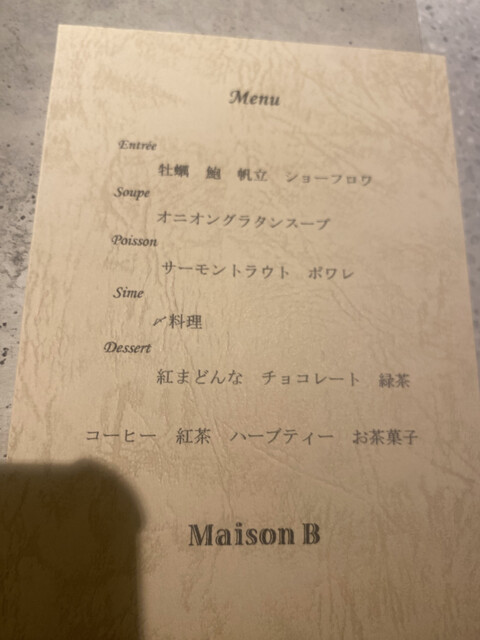 Menu
Entrée
牡蠣　鮑　帆立　ショーフロワ
Soupe
オニオングラタンスープ
Poisson
サーモントラウト　ポワレ
Sime
〆料理
Dessert
紅まどんな　チョコレート　緑茶
コーヒー　紅茶　ハーブティー　お茶菓子
Maison B